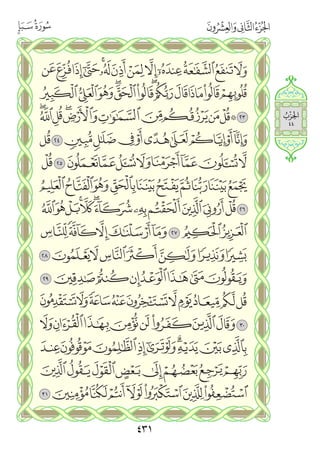 الجُزْءُ الثَّانِي وَالْعِشْرُونَ
سُورَةُ سَبَإٍ
وَلَا تَنفَعُ ٱلشَّفَٰعَةُ عِندَهُۥٓ إِلَّا لِمَنْ أَذِنَ لَهُۥۚ حَتَّىٰٓ إِذَا فُزِّعَ عَن
قُلُوبِهِمْ قَالُوا۟ مَاذَا قَالَ رَبُّكُمْۖ قَالُوا۟ ٱلْحَقَّۖ وَهُوَ ٱلْعَلِىُّ ٱلْكَبِيرُ
٢٣ ۞ قُلْ مَن يَرْزُقُكُم مِّنَ ٱلسَّمَٰوَٰتِ وَٱلْأَرْضِۖ قُلِ ٱللَّهُۖ
وَإِنَّآ أَوْ إِيَّاكُمْ لَعَلَىٰ هُدًى أَوْ فِى ضَلَٰلٍ مُّبِينٍ ٢٤ قُل
لَّا تُسْـَٔلُونَ عَمَّآ أَجْرَمْنَا وَلَا نُسْـَٔلُ عَمَّا تَعْمَلُونَ ٢٥ قُلْ
يَجْمَعُ بَيْنَنَا رَبُّنَا ثُمَّ يَفْتَحُ بَيْنَنَا بِٱلْحَقِّ وَهُوَ ٱلْفَتَّاحُ ٱلْعَلِيمُ
٢٦ قُلْ أَرُونِىَ ٱلَّذِينَ أَلْحَقْتُم بِهِۦ شُرَكَآءَۖ كَلَّاۚ بَلْ هُوَ ٱللَّهُ
ٱلْعَزِيزُ ٱلْحَكِيمُ ٢٧ وَمَآ أَرْسَلْنَٰكَ إِلَّا كَآفَّةً لِّلنَّاسِ
بَشِيرًا وَنَذِيرًا وَلَٰكِنَّ أَكْثَرَ ٱلنَّاسِ لَا يَعْلَمُونَ ٢٨
وَيَقُولُونَ مَتَىٰ هَٰذَا ٱلْوَعْدُ إِن كُنتُمْ صَٰدِقِينَ ٢٩
قُل لَّكُم مِّيعَادُ يَوْمٍ لَّا تَسْتَـْٔخِرُونَ عَنْهُ سَاعَةً وَلَا تَسْتَقْدِمُونَ
٣٠ وَقَالَ ٱلَّذِينَ كَفَرُوا۟ لَن نُّؤْمِنَ بِهَٰذَا ٱلْقُرْءَانِ وَلَا
بِٱلَّذِى بَيْنَ يَدَيْهِۗ وَلَوْ تَرَىٰٓ إِذِ ٱلظَّٰلِمُونَ مَوْقُوفُونَ عِندَ
رَبِّهِمْ يَرْجِعُ بَعْضُهُمْ إِلَىٰ بَعْضٍ ٱلْقَوْلَ يَقُولُ ٱلَّذِينَ
ٱسْتُضْعِفُوا۟ لِلَّذِينَ ٱسْتَكْبَرُوا۟ لَوْلَآ أَنتُمْ لَكُنَّا مُؤْمِنِينَ ٣١
الحِزْبُ
٤٤
٤٣١